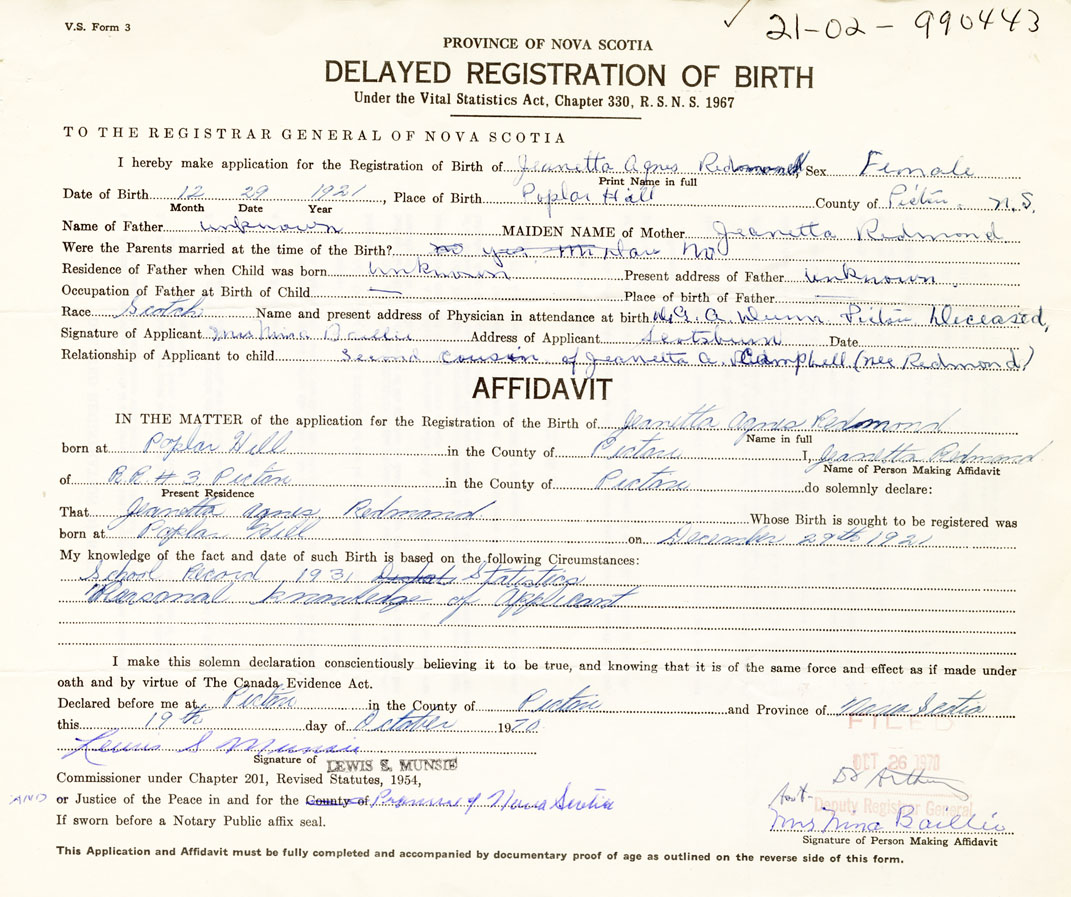 V.S. Form 3
✓ 21-02-990443
PROVINCE OF NOVA SCOTIA
DELAYED REGISTRATION OF BIRTH
Under the Vital Statistics Act, Chapter 330, R.S.N.S. 1967
TO THE REGISTRAR GENERAL OF NOVA SCOTIA
I hereby make application for the Registration of Birth of Jeanetta Agnes Redmond, Sex Female
Print Name in full
Date of Birth 12 29 1921, Place of Birth Poplar Hill County of Pictou. N.S.
Month Date Year
Name of Father unknown MAIDEN NAME of Mother Jeanetta Redmond
Were the Parents married at the time of the Birth? no yes No
Residence of Father when Child was born unknown Present address of Father unknown.
Occupation of Father at Birth of Child — Place of birth of Father —
Race Scotch Name and present address of Physician in attendance at birth G. A. Dunn Pictou Deceased,
Signature of Applicant Mrs Nina Baillie Address of Applicant Scotsburn Date
Relationship of Applicant to child Second cousin of Jeanetta A. Campbell (nee Redmond)
AFFIDAVIT
IN THE MATTER of the application for the Registration of Birth of Jeanetta Agnes Redmond
Name in full
born at Poplar Hill in the County of Pictou I, Jeanetta Redmond
Name of Person Making Affidavit
of R.R. # 3 Pictou in the County of Pictou do solemnly declare:
Present Residence
That Jeanetta Agnes Redmond Whose Birth is sought to be registered was
born at Poplar Hill on December 29th 1921
My knowledge of the fact and date of such Birth is based on the following Circumstances:
School Record 1931 Statistics
Personal knowledge of Applicant
I make this solemn declaration conscientiously believing it to be true, and knowing that it is of the same force and effect as if made under
oath and by virtue of The Canada Evidence Act.
Declared before me at Pictou in the County of Pictou and Province of Nova Scotia
this 19th day of October 1970
FILED
Lewis S Munsie
Signature of LEWIS S. MUNSIE
OCT 26 1970
Commissioner under Chapter 201, Revised Statutes, 1954,
AND or Justice of the Peace in and for the County of Province of Nova Scotia
Deputy Registrar General
If sworn before a Notary Public affix seal.
Mrs Nina Baillie
Signature of Person Making Affidavit
This Application and Affidavit must be fully completed and accompanied by documentary proof of age as outlined on the reverse side of this form.